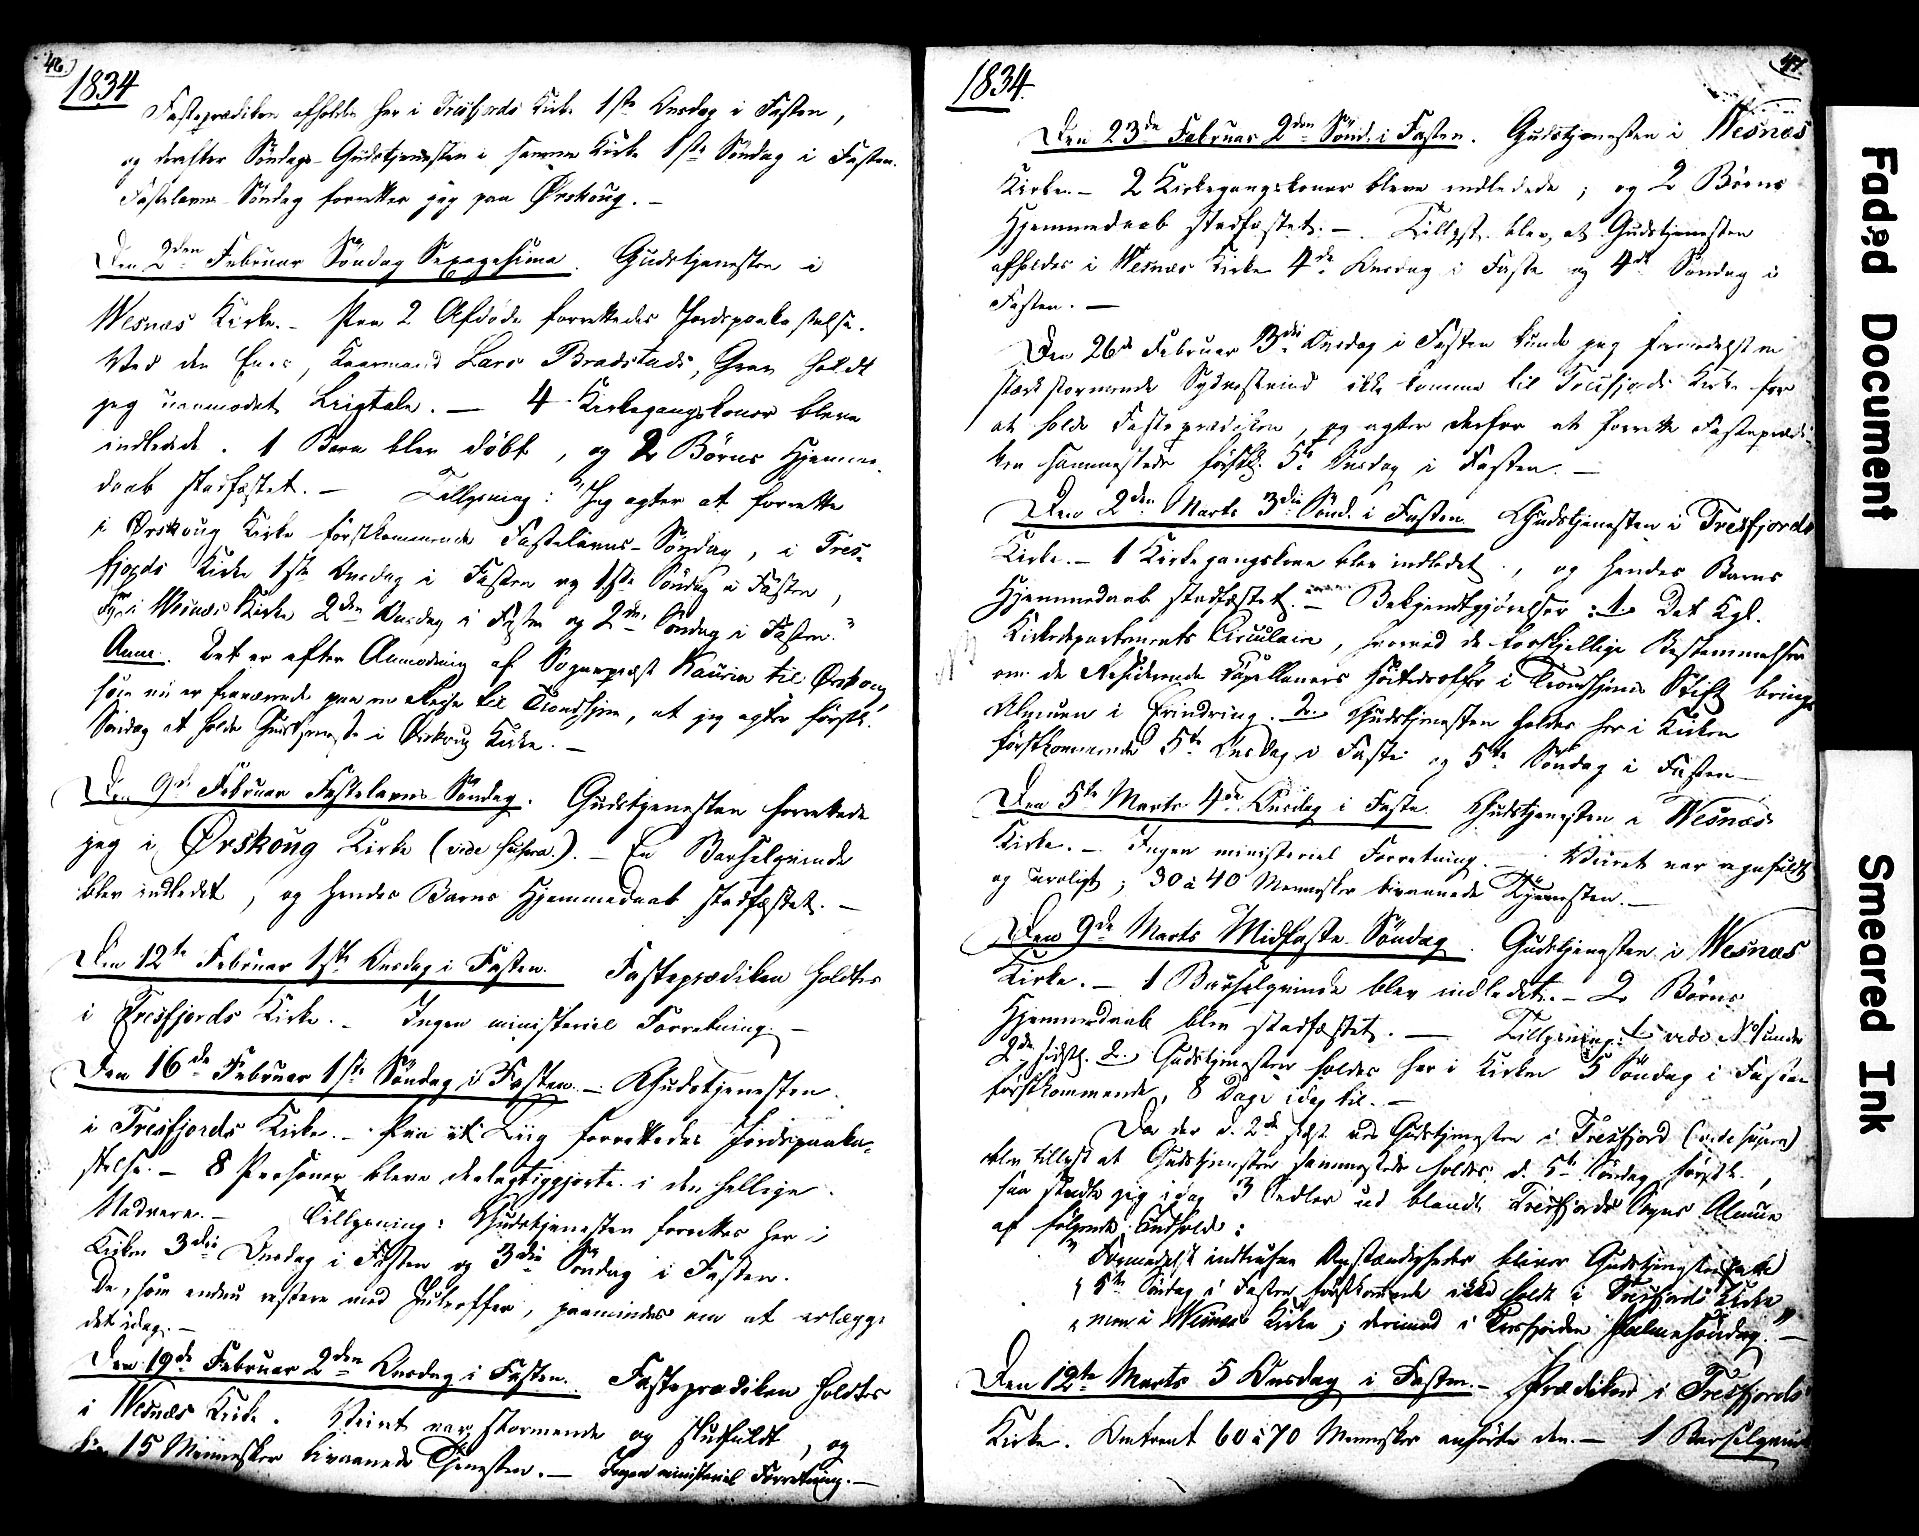 46.)
1834
Fasteprædiken afholdes her i Tresfjords Kirke 1ste Onsdag i Fasten,
og derefter Søndags-Gudstjenesten i samme Kirke 1ste Søndag i Fasten.
Fastelavns-Søndag forretter jeg paa Ørskoug. –
Den 2den Februar Søndag Sexagesima. Gudstjenesten i
Wesnæs Kirke. – Paa 2 Afdøde forrettedes Jordspaakastelse.
Ved den Enes, Kaarmand Lars Bradstads, Grav holdt
jeg uanmodet Liigtale. – 4 Kirkegangskoner bleve
indledede. 1 Barn blev døbt, og 2 Børns Hjemme-
daab stadfæstet. – Tillysning: "Jeg agter at forrette
i Ørskoug Kirke førstkommende Fastelavns-Søndag, i Tres-
fjords Kirke 1ste Onsdag i Fasten og 1ste Søndag i Fasten,
her i Wesnæs Kirke 2den Onsdag i Fasten og 2den Søndag i Fasten."
Anm. Det er efter Anmodning af Sognepræst Kaurin til Ørskoug,
som nu er fraværende paa en Reise til Trondhjem, at jeg agter førstk.
Søndag at holde Gudstjeneste i Ørskoug Kirke. –
Den 9de Februar Fastelavns-Søndag. Gudstjenesten forrettede
jeg i Ørskoug Kirke (vide supra.). – En Barselqvinde
blev indledet, og hendes Barns Hjemmedaab stadfæstet. –
Den 12te Februar 1ste Onsdag i Fasten. Fasteprædiken holdtes
i Tresfjords Kirke. – Ingen ministeriel Forretning. –
Den 16de Februar 1ste Søndag i Fasten. – Gudstjenesten
i Tresfjords Kirke. – Paa et Liig forrettedes Jordspaaka-
stelse. – 8 Personer bleve deelagtiggjorte i den hellige
Nadvere. – Tillysning: Gudstjenesten forrettes her i
Kirken 3die Onsdag i Fasten og 3die Søndag i Fasten.
De, som endnu restere med Juleoffer, paamindes om at erlægge
det idag. –
Den 19de Februar 2den Onsdag i Fasten. Fasteprædiken holdtes
i Wesnæs Kirke. Veiret var stormende og sludfuldt, og
15 Mennesker bivaanede Tjenesten. – Ingen ministeriel Forretning. –
47.
1834.
Den 23de Februar 2den Sønd. i Fasten. Gudstjenesten i Wesnæs
Kirke. – 2 Kirkegangskoner bleve indledede; og 2 Børns
Hjemmedaab stadfæstet. – Tillyst blev, at Gudstjenesten
afholdes i Wesnæs Kirke 4de Onsdag i Faste og 4de Søndag i
Fasten. –
Den 26de Februar 3die Onsdag i Fasten kunde jeg formedelst en
stærk stormende Sydvestvind ikke komme til Tresfjords Kirke for
at holde Fasteprædiken, og agter derfor at forrette Fasteprædi-
ken sammesteds førstk. 5te Onsdag i Fasten. –
Den 2den Marts 3die Sønd. i Fasten. Gudstjenesten i Tresfjords
Kirke. – 1 Kirkegangskone blev indledet, og hendes Barns
Hjemmedaab stadfæstet. – Bekjendtgjørelser: 1. Det Kgl.
Kirkedepartements Circulaire, hvorved de forskjellige Bestemmelser
om de Residerende Capellaners Høitidsoffer i Trondhjems Stift bringes
Almuen i Erindring. 2. Gudstjenesten holdes her i Kirken
førstkommende 5te Onsdag i Faste og 5te Søndag i Fasten –
Den 5te Marts 4de Onsdag i Faste. Gudstjenesten i Wesnæs
Kirke. – Ingen ministeriel Forretning. – Veiret var regnfuldt
og uroligt; 30 à 40 Mennesker bivaanede Tjenesten. –
Den 9de Marts Midfaste-Søndag. Gudstjenesten i Wesnæs
Kirke. – 1 Barselqvinde blev indledet. – 2 Børns
Hjemmedaab blev stadfæstet. – Tillysning: 1. vide No 1 under
2de sidstl. 2. Gudstjenesten holdes her i Kirken 5 Søndag i Fasten
førstkommende, 8 Dage idag til. –
Da der d. 2de sidst ved Gudstjenesten i Tresfjord (vide supra)
blev tillyst at Gudstjenesten sammesteds holdes d. 5te Søndag førstk.,
saa skikkede jeg idag 3 Sedler ud blandt Tresfjords Sogns Almue
af følgende Indhold:
"Formedelst indtrufne Omstændigheder bliver Gudstjenesten
" 5te Søndag i Fasten førstkommende ikke holdt i Tresfjords Kirke
" men i Wesnæs Kirke; derimod i Tresfjorden Palmesøndag." –
Den 12te Marts 5 Onsdag i Fasten. – Prædiken i Tresfjords
Kirke. Omtrent 60 à 70 Mennesker anhørte den. – 1 Barselqvinde
Faded Document
Smeared Ink